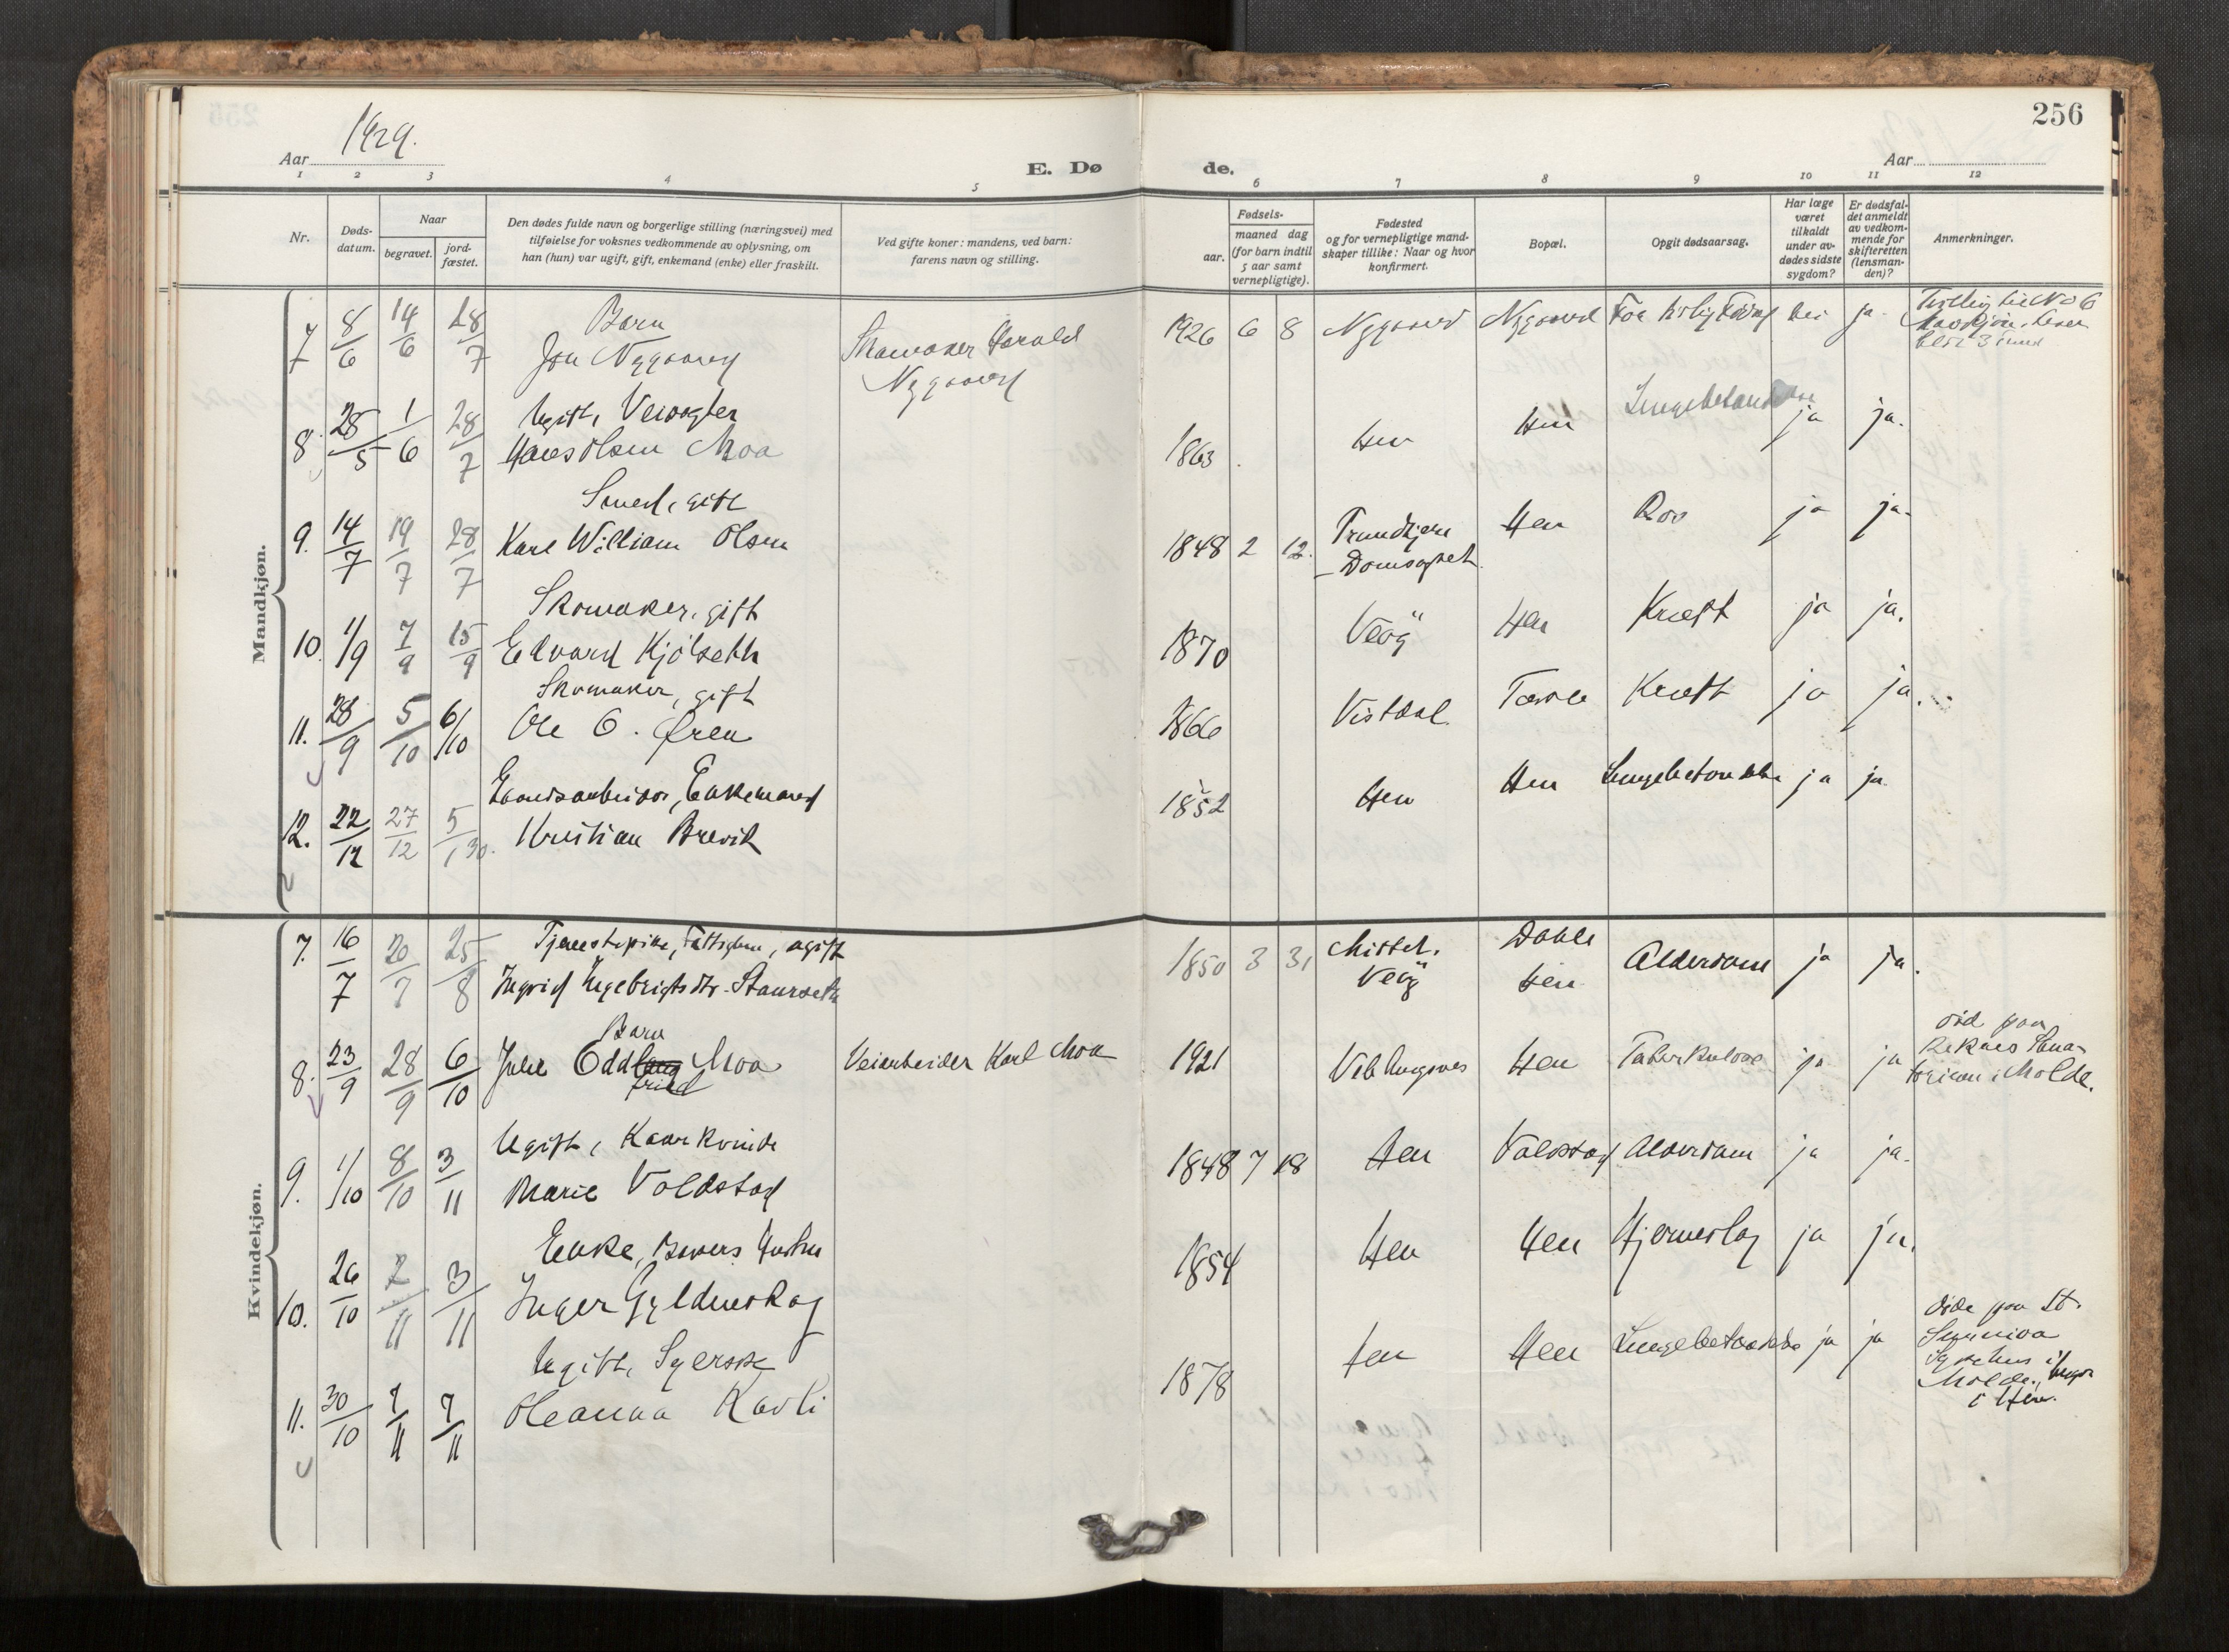 256
Aar 1929.
E. Døde.
Aar
1 2 3 4 5 6 7 8 9 10 11 12
Nr.
Døds-
datum.
Naar
begravet.
jord-
fæstet.
Den dødes fulde navn og borgerlige stilling (næringsvei) med
tilføielse for voksnes vedkommende av oplysning, om
han (hun) var ugift, gift, enkemand (enke) eller fraskilt.
Ved gifte koner: mandens, ved barn:
farens navn og stilling.
Fødsels-
aar.
maaned dag
(for barn indtil
5 aar samt
vernepligtige).
Fødested
og for vernepligtige mand-
skaper tillike: Naar og hvor
konfirmert.
Bopæl.
Opgit dødsaarsag.
Har læge
været
tilkaldt
under av-
dødes sidste
sygdom?
Er dødsfal-
det anmeldt
av vedkom-
mende for
skifteretten
(lensman-
den)?
Anmerkninger.
Mandkjøn.
Barn
7 8/6 14/6 28/7 Jon Nygaard Skomaker Harald Nygaard 1926 6 8 Nygaard Nygaard nei ja. Tvilling til No 6
Ugift,
8. 28/5 1/6 28/7 Hans Olsen Moa 1863 Hen Hen Lungebetændelse ja ja.
Smed, gift
9. 14/7 19/7 28/7 Karl William Olsen 1848 2 12. Trondhjem Domsognet Hen ja ja.
Skomaker, gift
10. 1/9 7/9 15/9 Edvard Kjölseth 1870 Veög Hen Kræft ja ja.
Skomaker, gift
11. 28/9 5/10 6/10 Ole O. Øren 1866 Vistdal Torvle Kræft ja ja.
Enkemand
12. 22/12 27/12 5/1 30. Kristian Brevik 1852 Hen Hen Lungebetændelse ja ja
Kvindekjøn.
Tjenestepike, ugift
7. 16/7 20/7 25/8 Ingrid Ingebrigtsdtr. Staurseth 1850 3 31 Veög Dahle Hen Alderdom ja ja.
Barn
8. 23/9 28/9 6/10 Julie Oddlaug fried Moa Veiarbeider Karl Moa 1921 Veblungsnes Hen Tuberkulose ja ja död paa Reknes Sanatorium i Molde.
Ugift, Kaarkvinde
9. 1/10 8/10 3/11 Marie Voldstad 1848 7 18 Hen Voldstad Alderdom ja ja.
Enke,
10. 26/10 2/11 3/11 Inger Gyldenskog 1854 Hen Hen Hjerneslag ja ja.
Ugift, Syerske
11. 30/10 7/11 7/11 Oleanna Kavli 1878 Hen Hen Lungebetændelse ja ja döde paa St. Sunniva Sykehus i Molde, i Hen.